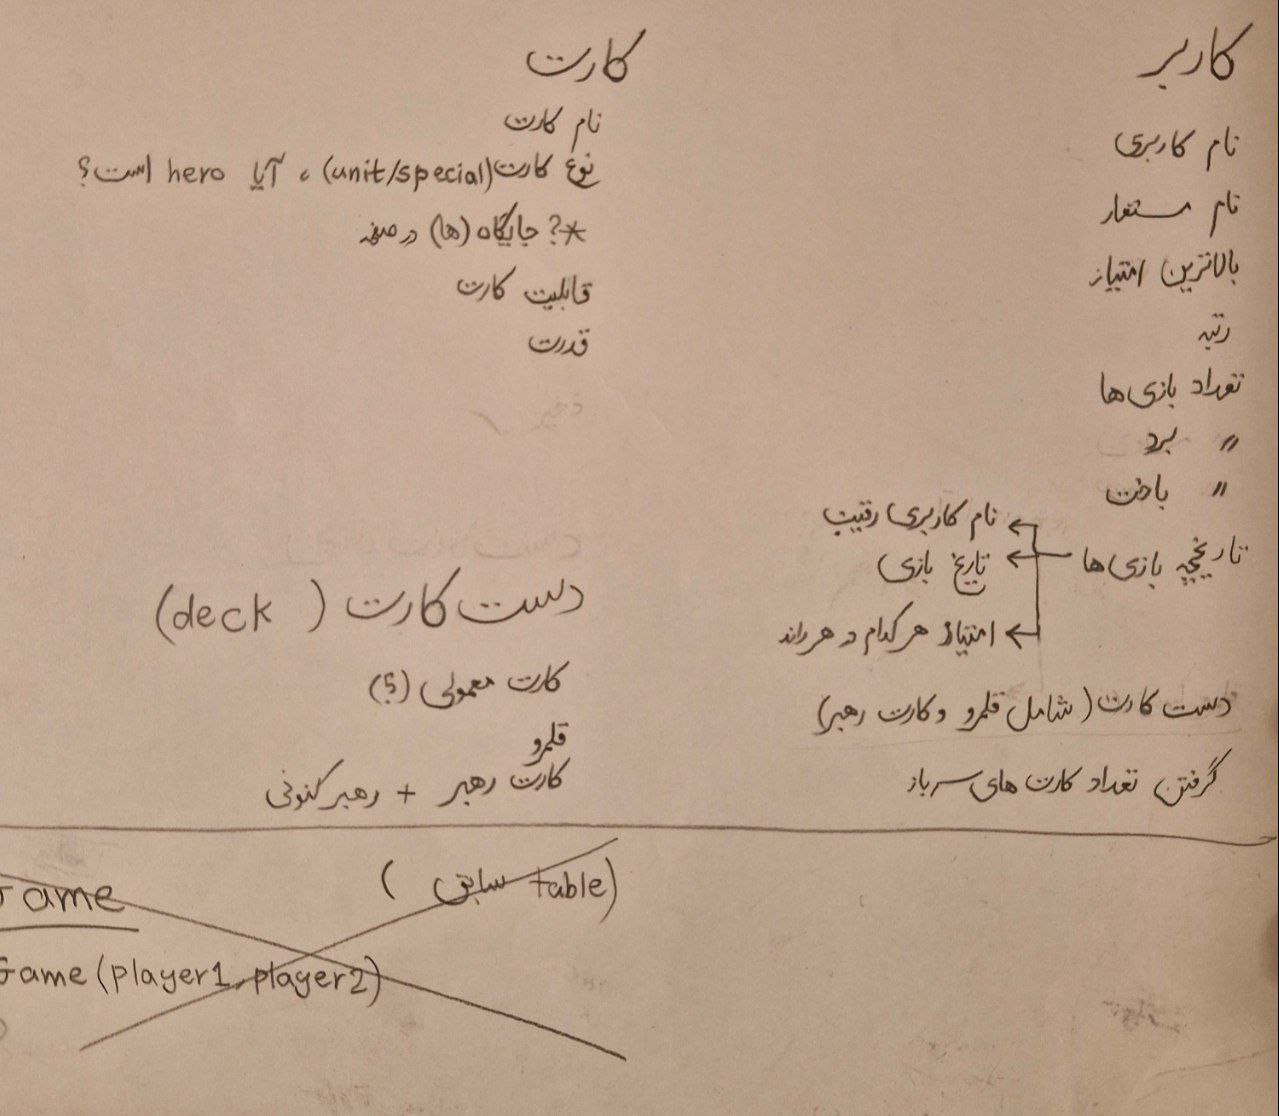 کاربر
نام کاربری
نام مستعار
بالاترین امتیاز
رتبه
تعداد بازی ها
〃 برد
〃 باخت
تاریخچه بازی ها
نام کاربری رقیب
تاریخ بازی
امتیاز هر کدام در هر راند
دست کارت (شامل قلمرو و کارت رهبر)
گرفتن تعداد کارت های سرباز
کارت
نام کارت
نوع کارت (unit/special) ، آیا hero است؟
*? جایگاه (ها) در صفحه
قابلیت کارت
قدرت
ذخیره
دست کارت (deck)
کارت معمولی (؟)
قلمرو
کارت رهبر + رهبر کنونی
Game (سابق table)
Game (player1, player2)